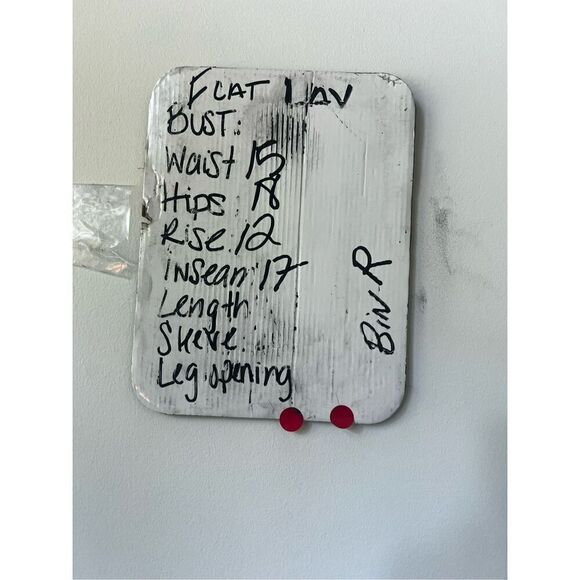 FLAT LAY
BUST:
Waist 15
Hips 18
Rise 12
Inseam 17
Length
Sleeve
Leg opening
Bin R